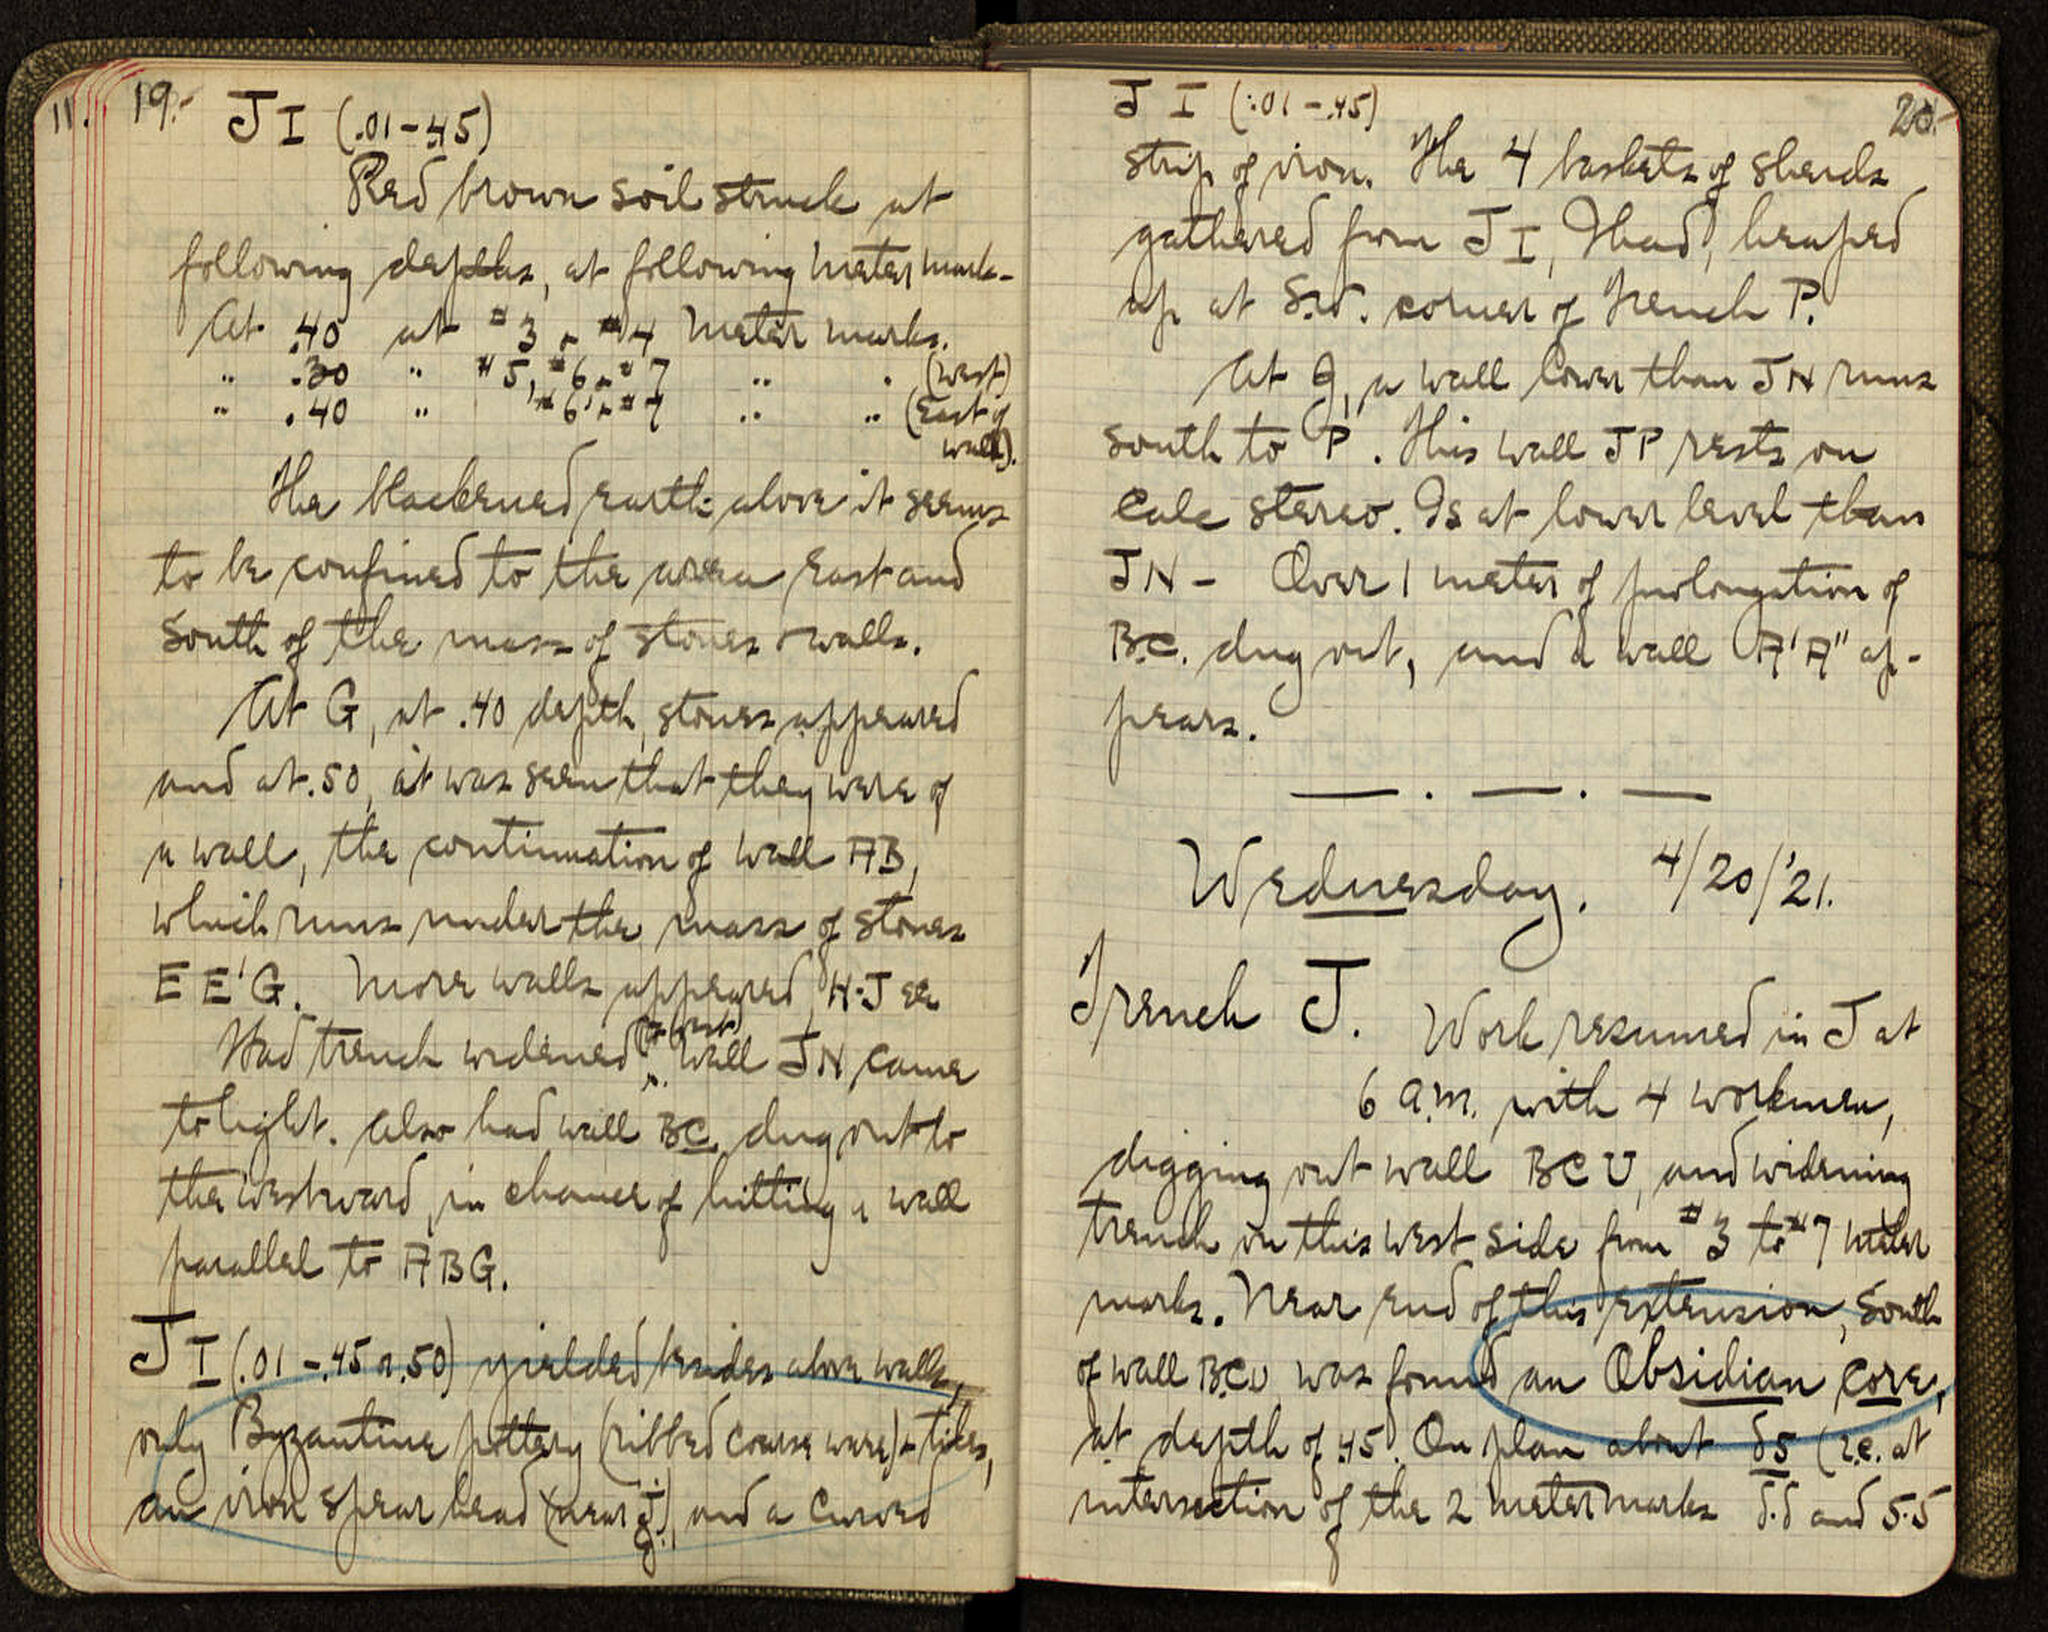 11. 19.-
J I (.01-.45)
Red brown soil struck at
following depths, at following meter mark-
At .40 at #3 + #4 meter marks.
" .30 " #5, #6, + #7 " " (West)
" .40 " #6, + #7 " " (East of
wall).
The blackened earth above it seems
to be confined to the area East and
South of the mass of stones + walls.
At G, at .40 depth, stones appeared
and at .50, it was seen that they were of
a wall, the continuation of wall AB,
which runs under the mass of stones
E E' G. More walls appeared, H-J
Had trench widened (to West). Wall JN came
to light. Also had wall BC dug out to
the westward, in chance of hitting a wall
parallel to ABG.
J I (.01-.45 or .50) yielded besides above walls,
only Byzantine pottery (ribbed coarse ware) + tiles,
an iron spear head (near ), and a curved
20.-
J I (.01-.45)
strip of iron. The 4 baskets of sherds
gathered from J I, I had, heaped
up at S.W. corner of Trench P.
At J, a wall lower than JN runs
south to P. This wall JP rests on
Calc stereo. Is at lower level than
JN - Over 1 meter of prolongation of
B.C. dug out, and a wall A'A" ap-
pears.
Wednesday. 4/20/'21.
Trench J. Work resumed in J at
6 a.m. with 4 workmen,
digging out wall BCU, and widening
trench on this west side from #3 to #7 meter
marks. Near end of this extension, South
of wall BCU was found an Obsidian core,
at depth of .45. On plan about δ5 (i.e. at
intersection of the 2 meter marks δ.δ and 5.5